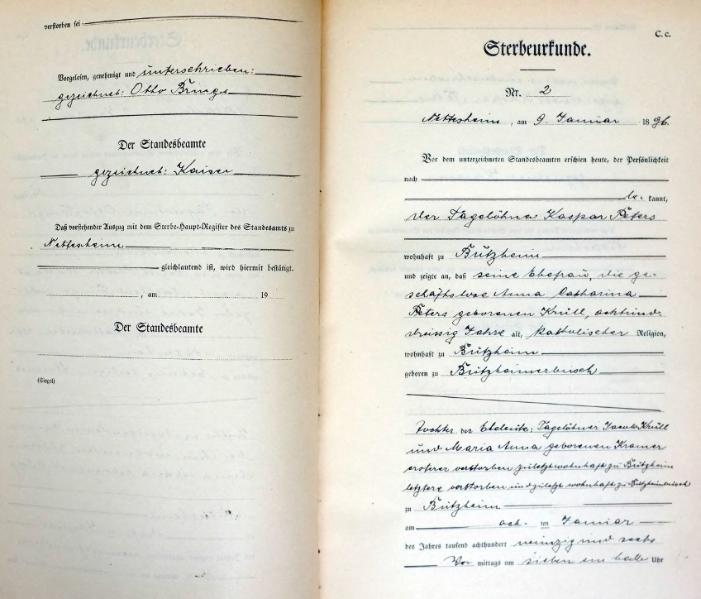 verstorben sei
Vorgelesen, genehmigt und unterschrieben:
gezeichnet: Otto Brings
Der Standesbeamte
gezeichnet: Kaiser
Daß vorstehender Auszug mit dem Sterbe-Haupt-Register des Standesamts zu
Nettesheim
gleichlautend ist, wird hiermit bestätigt.
, am 19
Der Standesbeamte
(Siegel)
C. c.
Sterbeurkunde.
Nr. 2
Nettesheim, am 9. Januar 1896.
Vor dem unterzeichneten Standesbeamten erschien heute, der Persönlichkeit
nach
be kannt,
der Tagelöhner Kaspar Peters
wohnhaft zu Bützheim
und zeigte an, daß seine Ehefrau, die ge-
schäftslose Anna Catharina
Peters geborenen Krüll, achtund-
dreissig Jahre alt, katholischer Religion,
wohnhaft zu Bützheim
geboren zu Bützheimerbusch
Tochter der Eheleute: Tagelöhner Jacob Krüll
und Maria Anna geborenen Kramer
ersterer verstorben zuletzt wohnhaft zu Bützheim
letztere verstorben und zuletzt wohnhaft zu Bützheimerbusch
zu Bützheim
am acht ten Januar
des Jahres tausend achthundert neunzig und sechs
Vor mittags um sieben ein halb Uhr